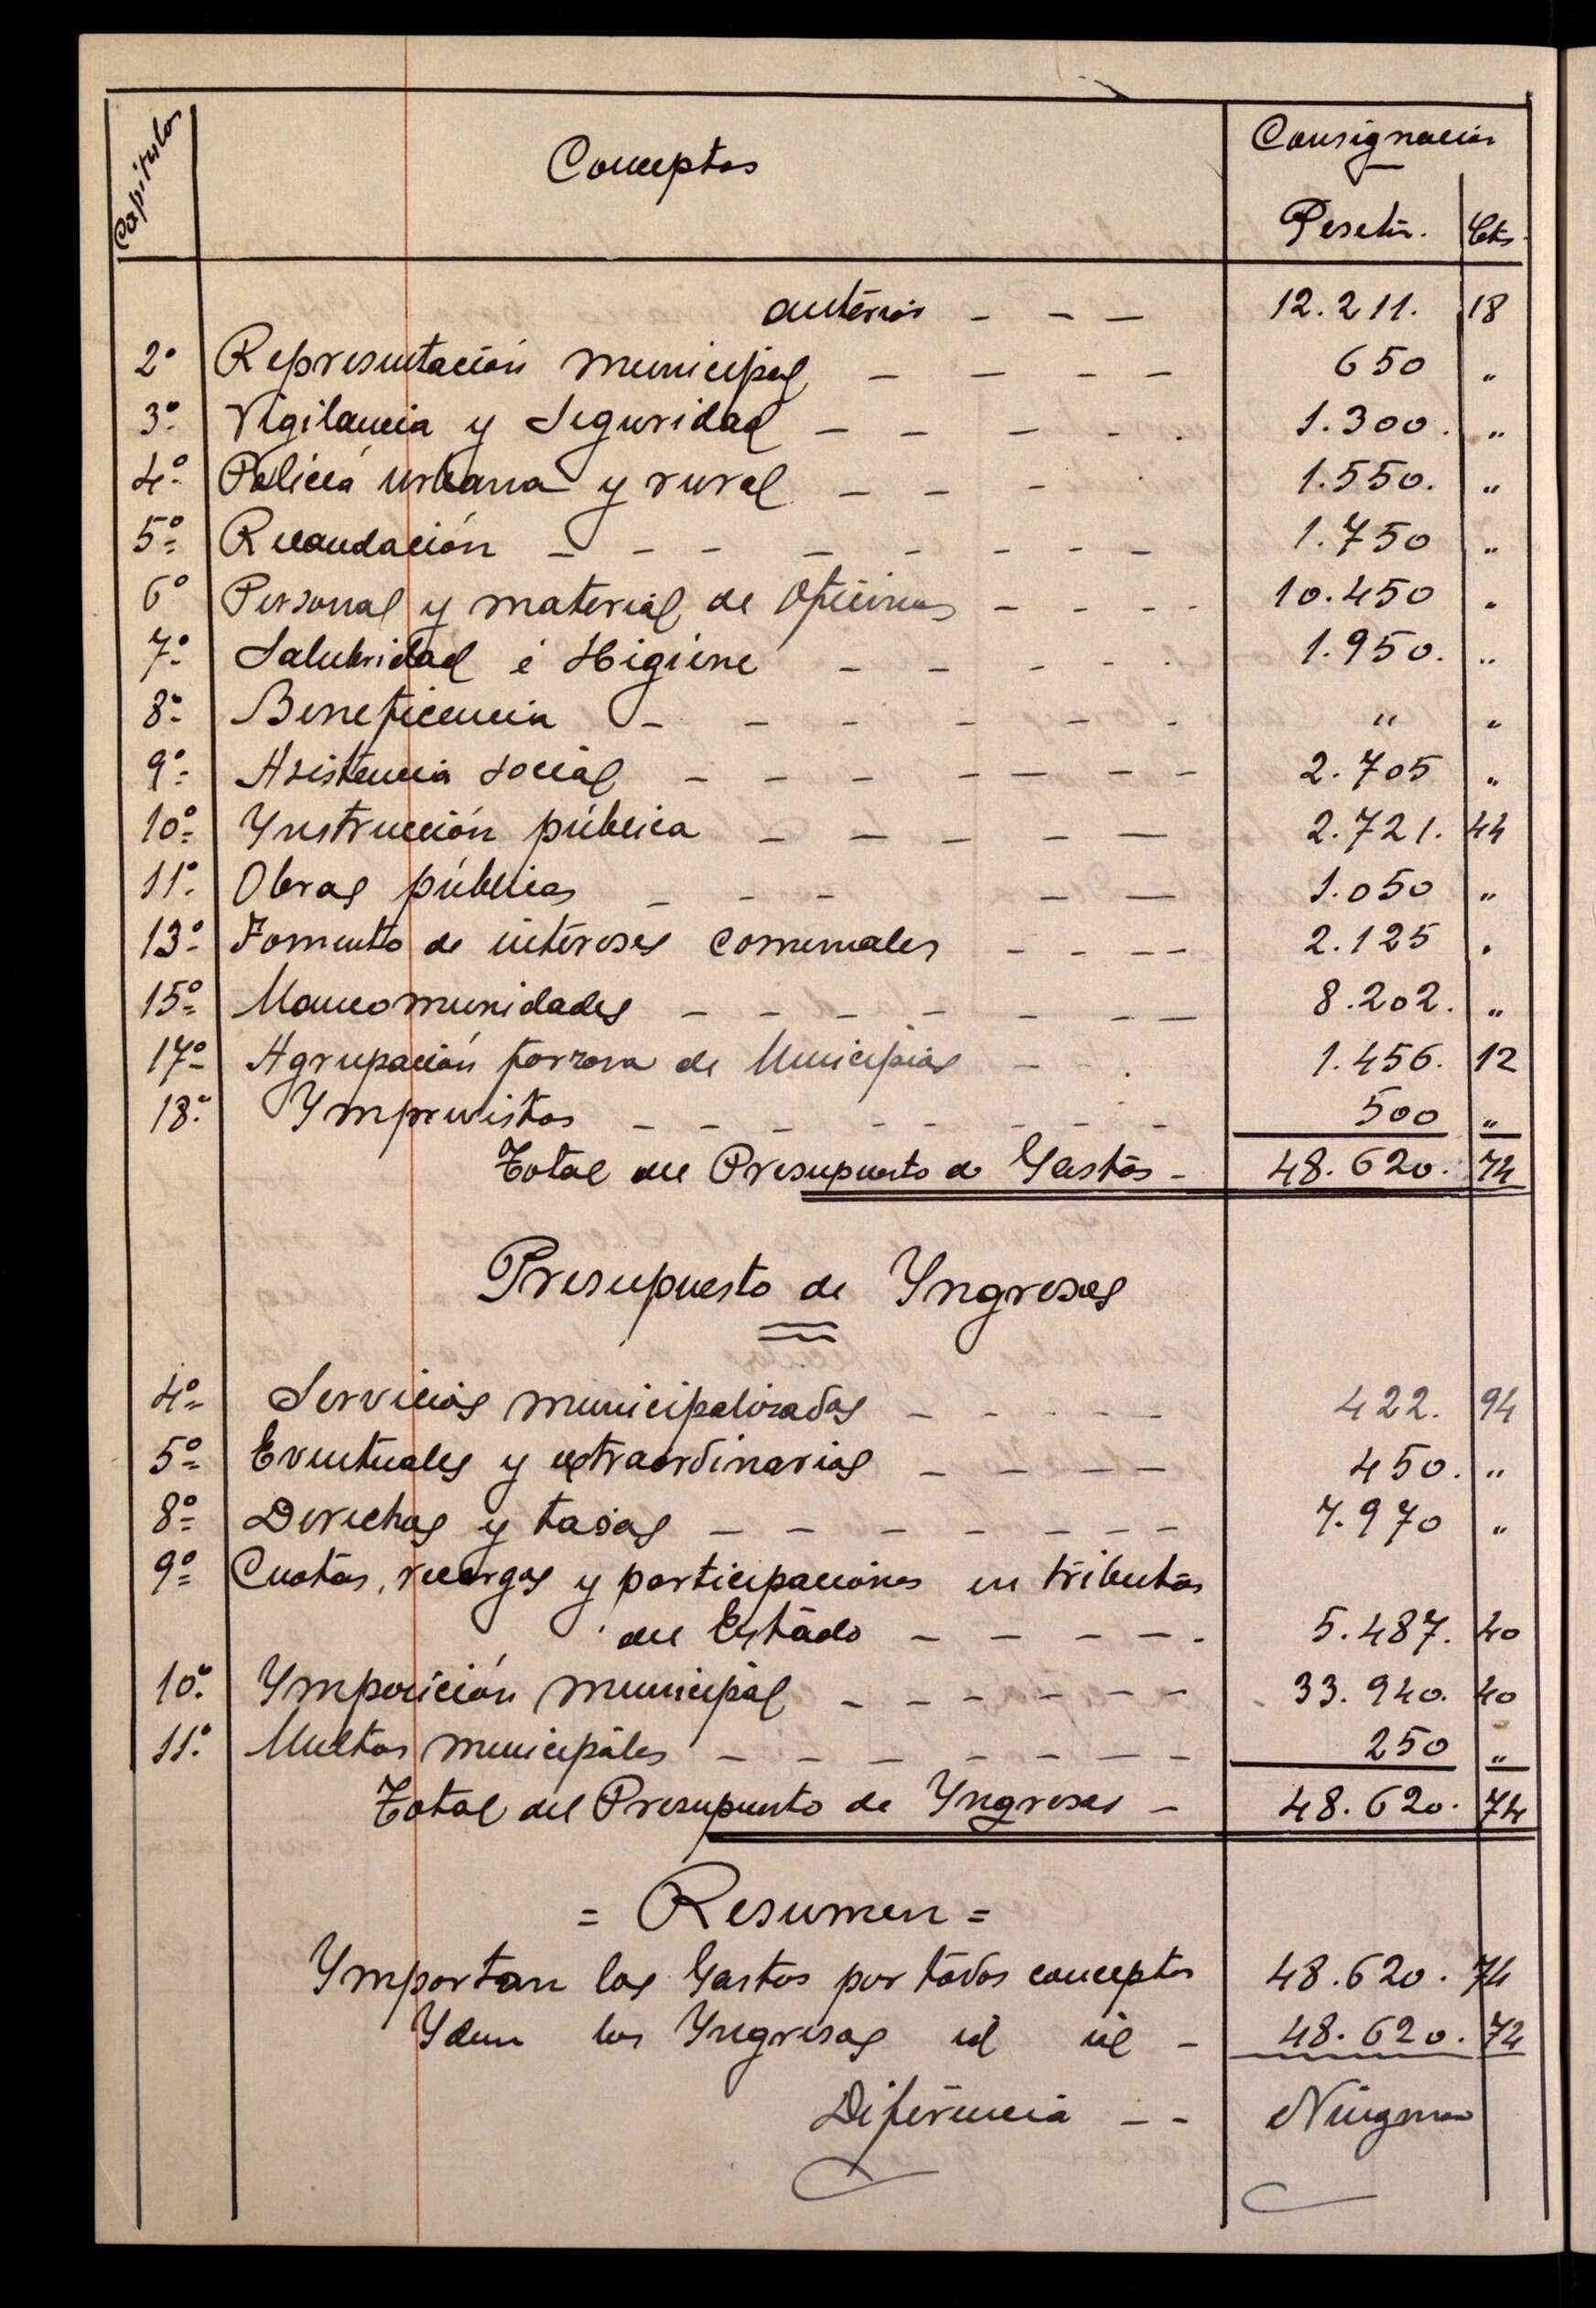 Capítulos Conceptos Consignación
Pesetas. Cts.
anterior - - - 12.211. 18
2º Representación municipal - - - - 650 "
3º Vigilancia y Seguridad - - - - . 1.300. "
4º Policía urbana y rural - - - . 1.550. "
5º Recaudación - - - - - - - - 1.750 "
6º Personal y material de Oficinas - - - - 10.450 "
7º Salubridad é Higiene - - - - . 1.950. "
8º Beneficencia - - - - - - " "
9º Asistencia social - - - - - - - 2.705 "
10º Ynstrucción pública - - - - - 2.721. 44
11º Obras públicas - - - - - 1.050 "
13º Fomento de intereses comunales - - - - 2.125 "
15º Mancomunidades - - - - - - - 8.202. "
17º Agrupación forzosa de Municipios - - . 1.456. 12
18º Ymprevistos - - - - - - - - 500 "
Total del Presupuesto de Gastos - 48.620. 74
Presupuesto de Yngresos
4º Servicios municipalizados - - - - - 422. 94
5º Eventuales y extraordinarios - - - - 450. "
8º Derechos y tasas - - - - - - - 7.970 "
9º Cuotas, recargos y participaciones en tributos
del Estado - - - - - 5.487. 40
10º Ymposición municipal - - - - - - 33.940. 40
11º Multas municipales - - - - - - - 250 "
Total del Presupuesto de Yngresos - 48.620. 74
= Resumen =
Ymportan los Gastos por todos conceptos 48.620. 74
Ydem los Yngresos id id - 48.620. 74
Diferencia - - Ninguna